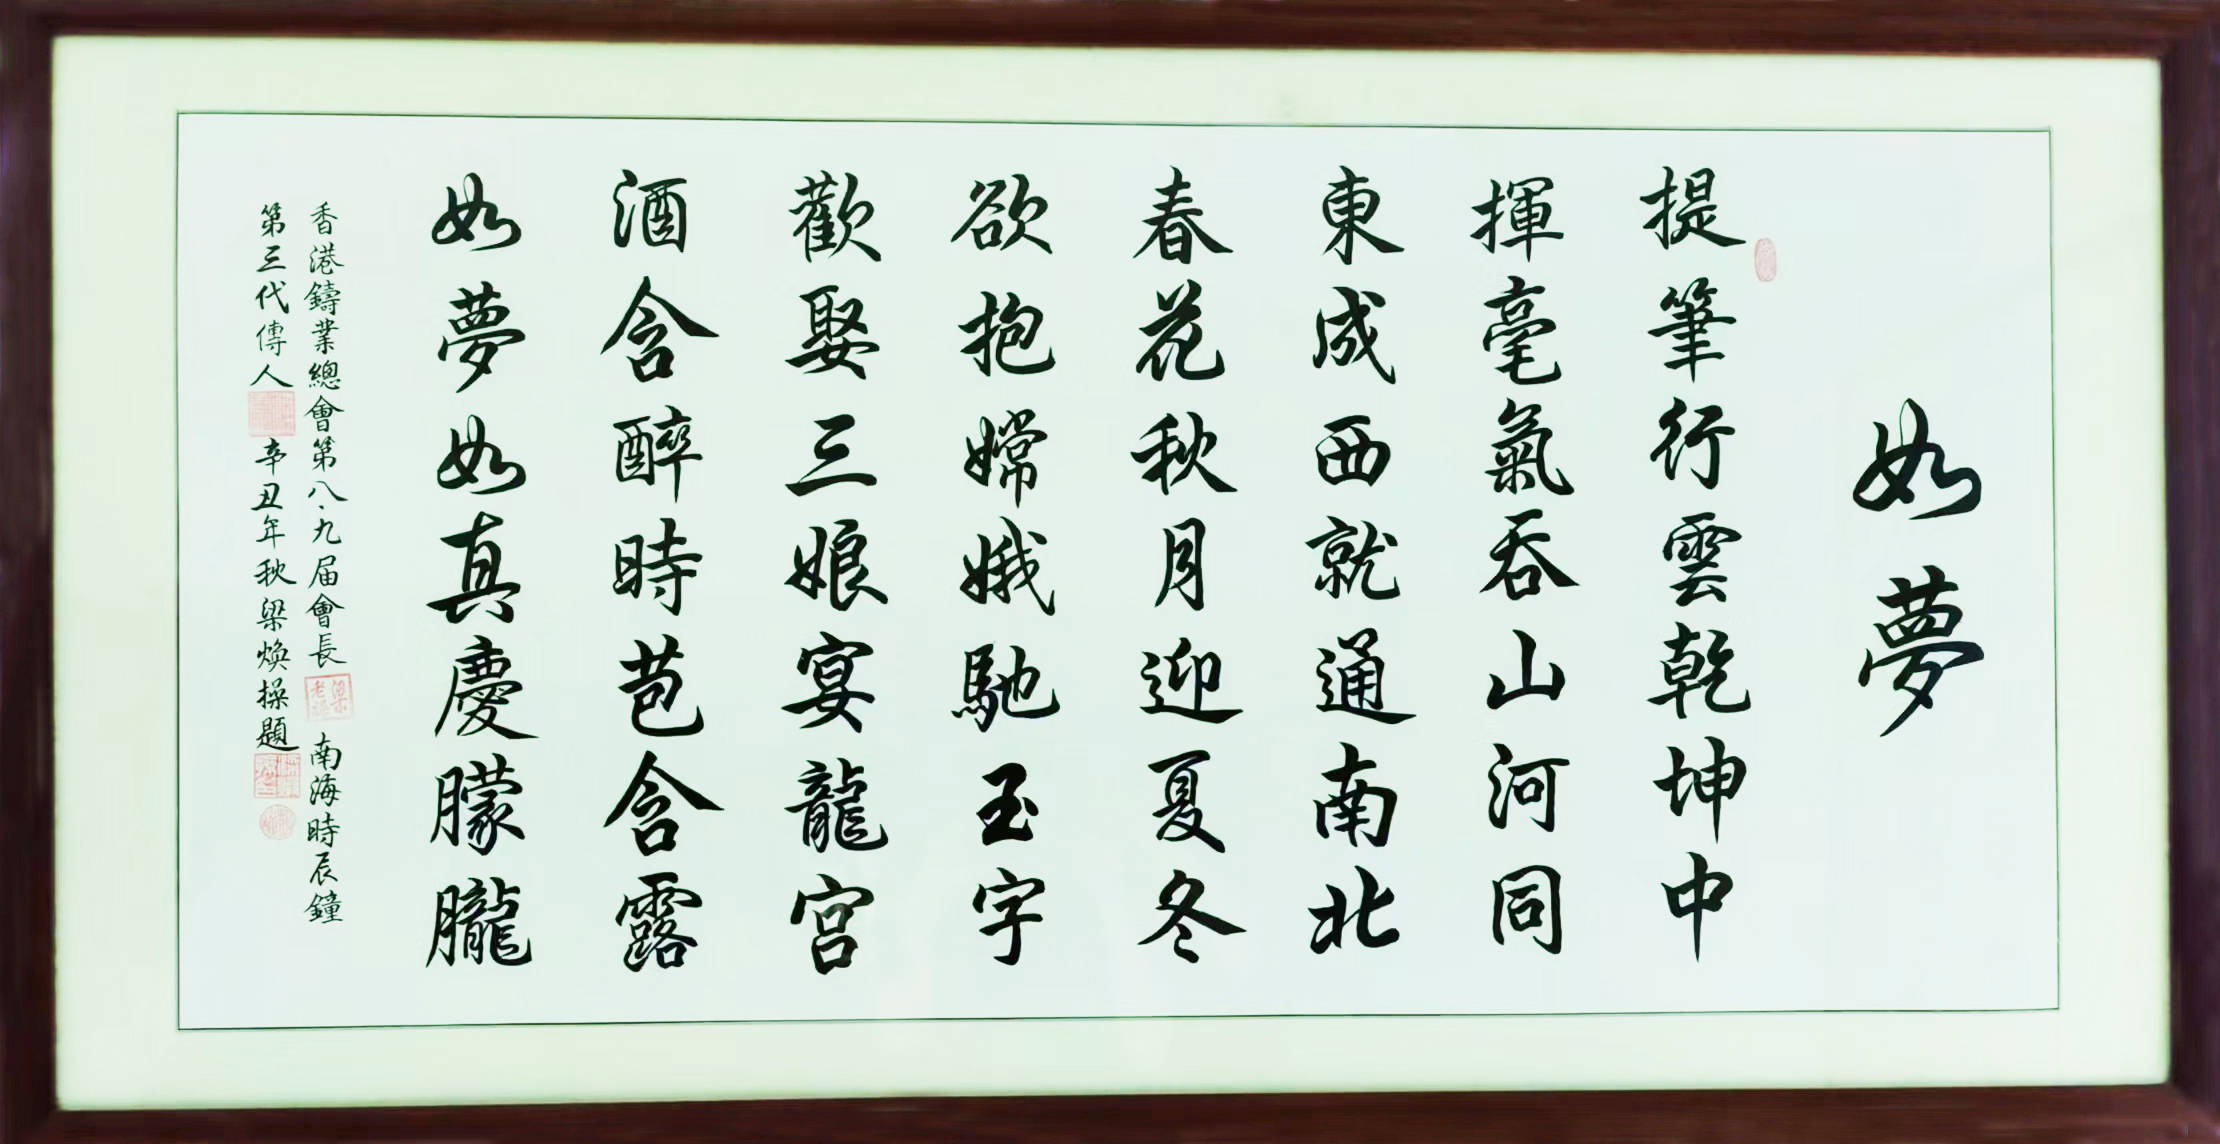 如夢
提筆行雲乾坤中
揮毫氣吞山河同
東成西就通南北
春花秋月迎夏冬
欲抱嫦娥馳玉字
歡娶三娘宴龍宮
酒含醉時苞含露
如夢如真慶朦朧
香港鑄業總會第八、九届會長 南海時辰鐘
第三代傳人 辛丑年秋梁煥操題